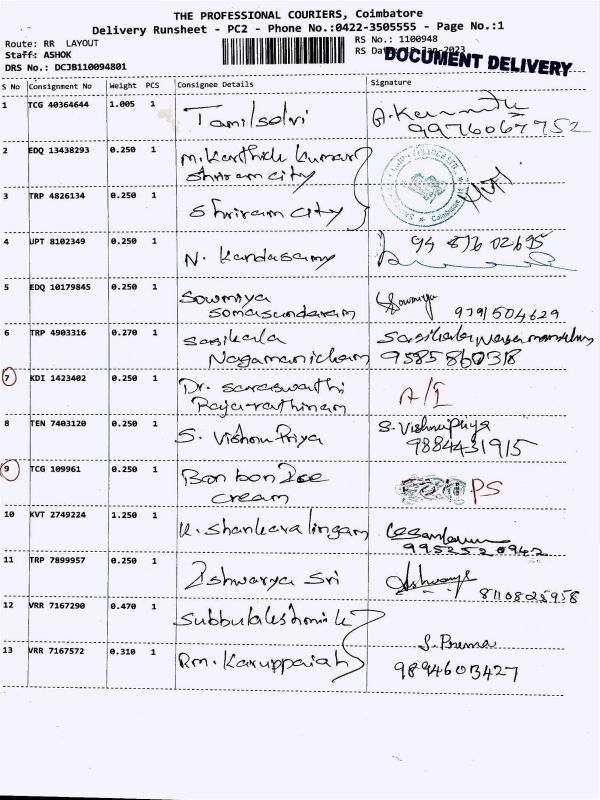 THE PROFESSIONAL COURIERS, Coimbatore
Delivery Runsheet - PC2 - Phone No.:0422-3505555 - Page No.:1
Route: RR LAYOUT
RS No.: 1100948
Staff: ASHOK
RS Date: -Jan-2023
DOCUMENT DELIVERY
DRS No.: DCJB110094801
S No Consignment No Weight PCS Consignee Details Signature
1 TCG 40364644 1.005 1 Tamilselvi
9976067752
2 EDQ 13438293 0.250 1 M. Karthick Kumar
Shriram city
3 TRP 4826134 0.250 1 Shriram City
4 UPT 8102349 0.250 1 N. Kandasamy 94 876 02695
5 EDQ 10179845 0.250 1 Sowmiya
Somasundaram Sowmiya 9791504629
6 TRP 4903316 0.270 1 Sasikala
Nagamanicham 9585860318
7 KDI 1423402 0.250 1 Dr. Saraswathi
Raja-rathinam A/I
8 TEN 7403120 0.250 1 S. Vishnu Priya S. Vishnu Priya
9884431915
9 TCG 109961 0.250 1 Bon bon Ice
cream PS
10 KVT 2749224 1.250 1 K. Shankara lingam
9952520942
11 TRP 7899957 0.250 1 Ishwarya Sri Ishwarya
8110825958
12 VRR 7167290 0.470 1 Subbulakshmi k
13 VRR 7167572 0.310 1 Rm. Karuppaiah S. Prema
9894603427